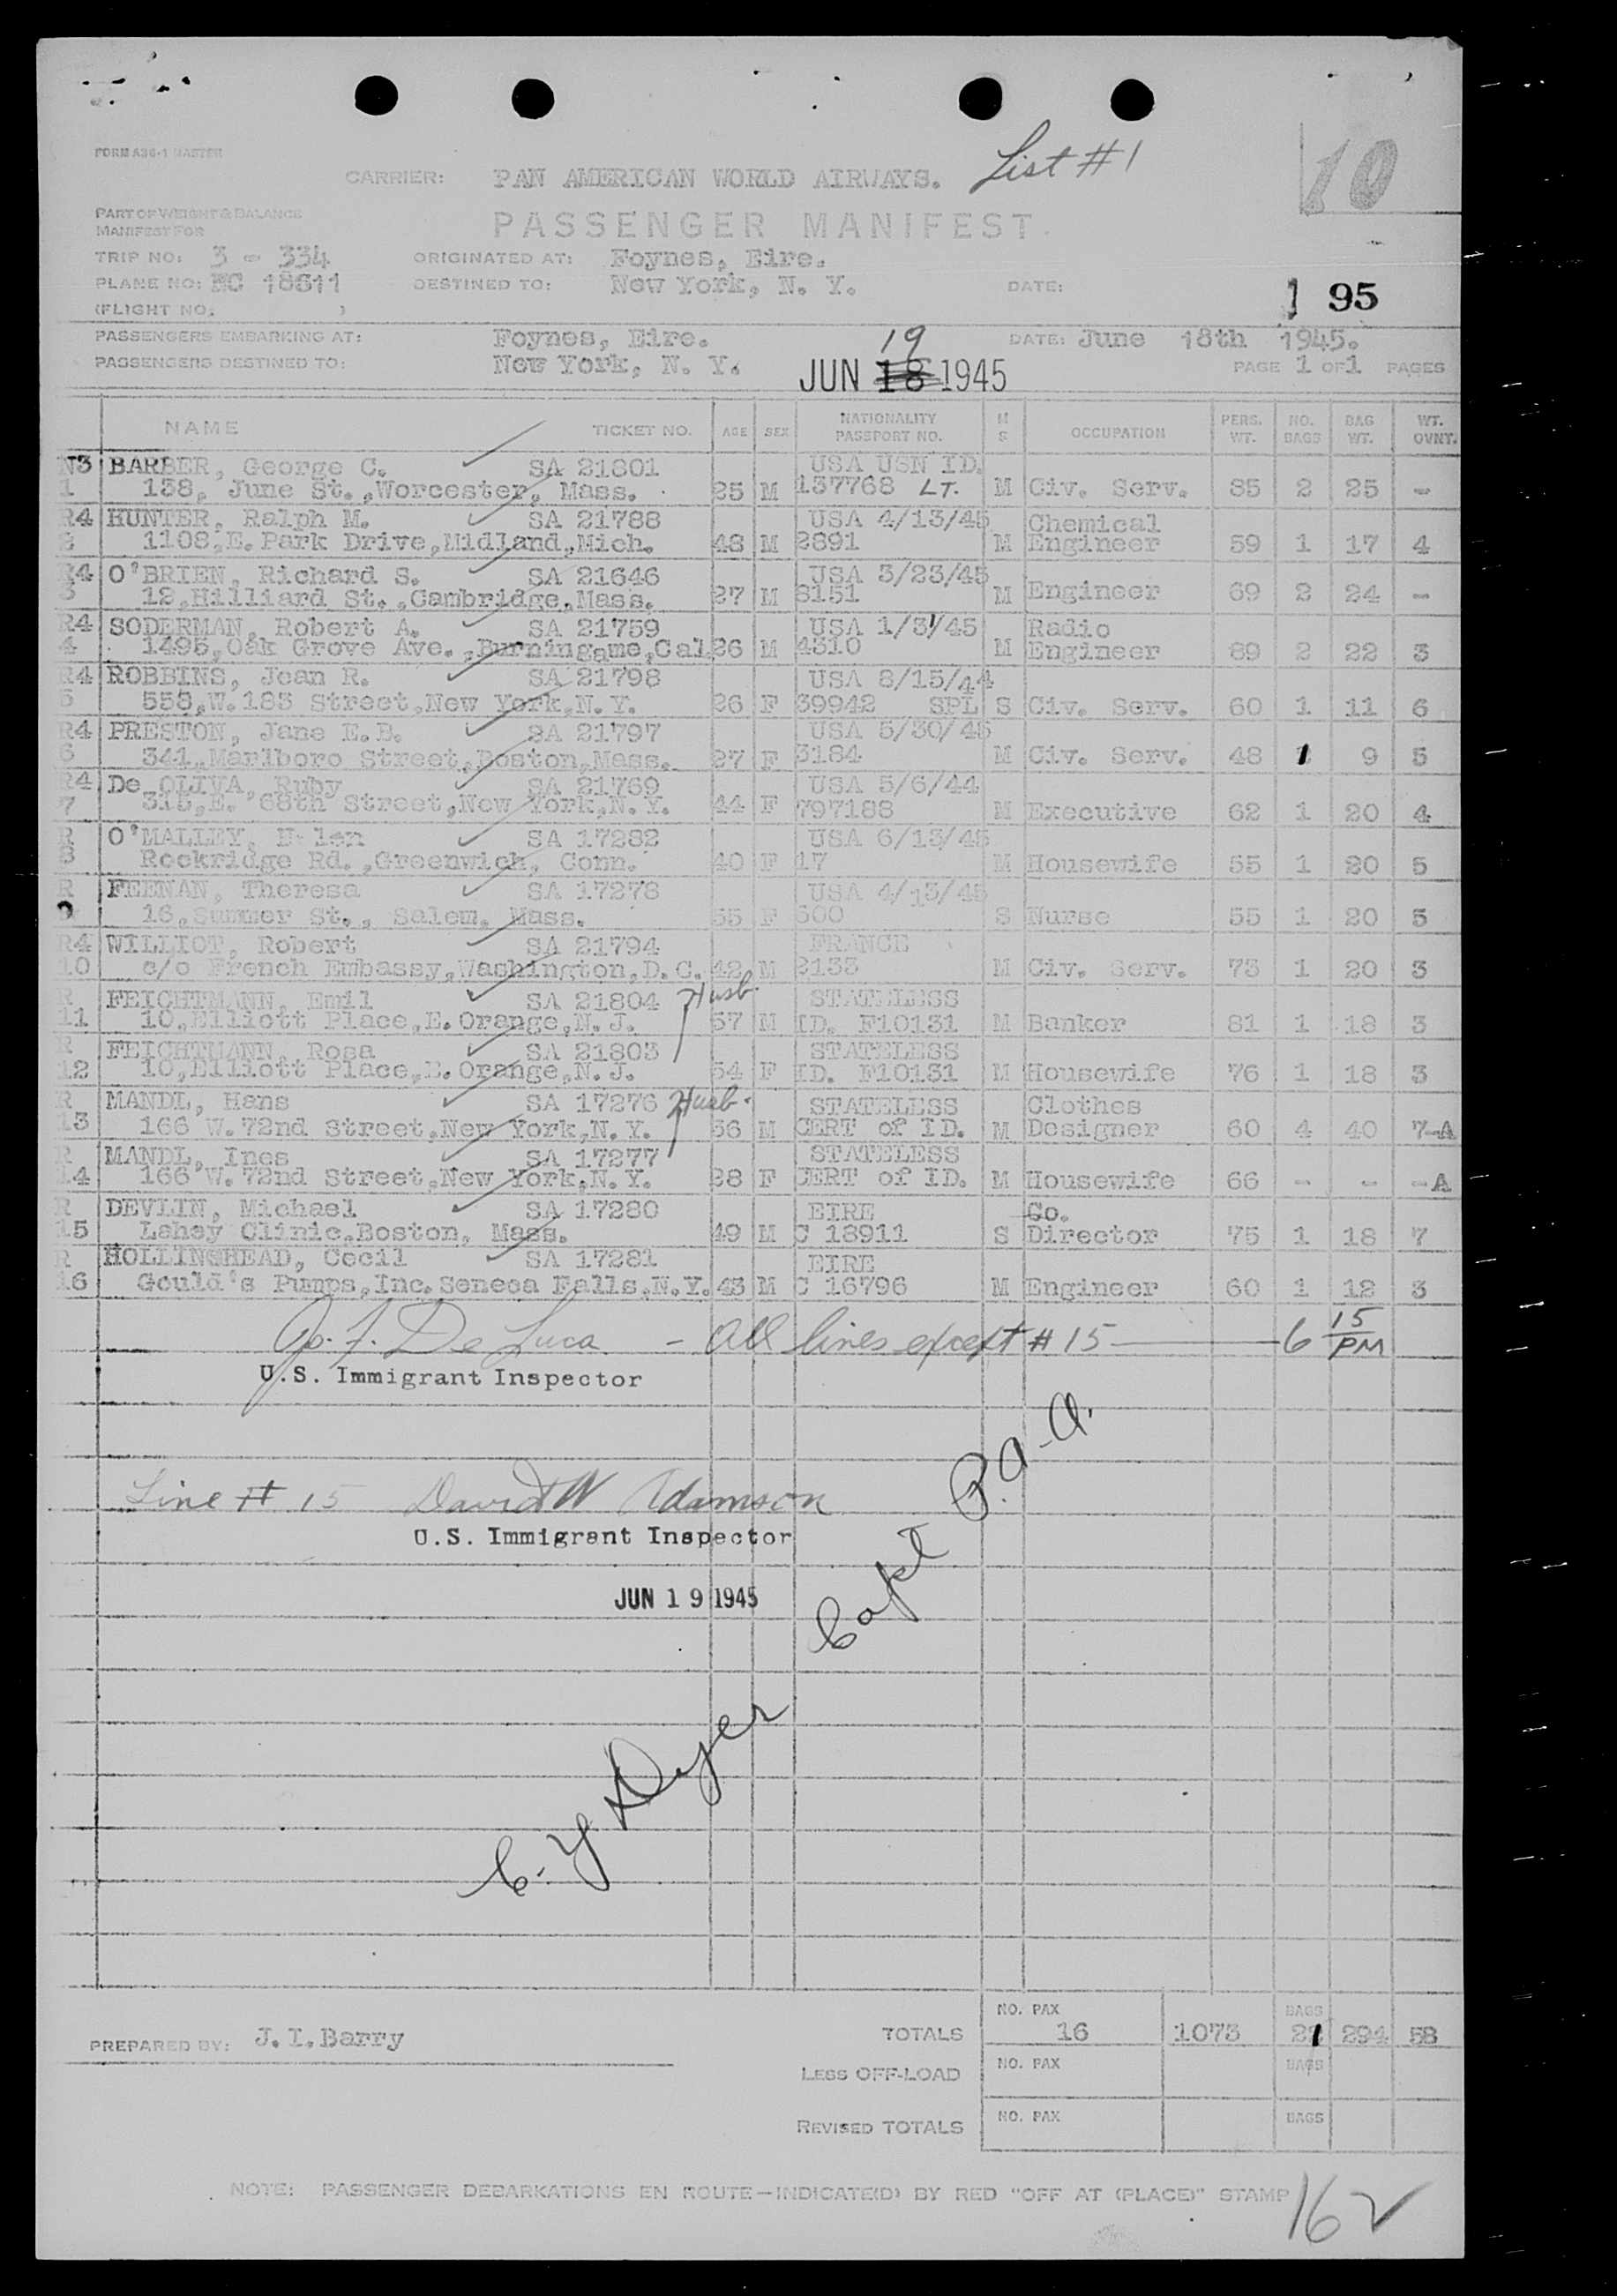 FORM A36-1 MASTER
List #1
10
CARRIER: PAN AMERICAN WORLD AIRWAYS.
PART OF WEIGHT & BALANCE
MANIFEST FOR
PASSENGER MANIFEST
TRIP NO: 3 - 334 ORIGINATED AT: Foynes, Eire.
PLANE NO: NC 18611 DESTINED TO: New York, N. Y. DATE: 1 95
(FLIGHT NO. )
PASSENGERS EMBARKING AT: Foynes, Eire. 19 DATE: June 18th 1945.
PASSENGERS DESTINED TO: New York, N. Y. JUN 18 1945 PAGE 1 OF 1 PAGES
NAME TICKET NO. AGE SEX NATIONALITY PASSPORT NO. M S OCCUPATION PERS. WT. NO. BAGS BAG WT. WT. OVNT.
N3 BARBER, George C. SA 21801 USA USN ID.
1 138, June St.,Worcester, Mass. 25 M 137768 LT. M Civ. Serv. 85 2 25 -
R4 HUNTER, Ralph M. SA 21788 USA 4/13/45 Chemical
2 1108,E.Park Drive,Midland,Mich. 48 M 2891 M Engineer 59 1 17 4
R4 O'BRIEN, Richard S. SA 21646 USA 3/23/45
3 12,Hilliard St.,Cambridge,Mass. 27 M 8151 M Engineer 69 2 24 -
R4 SODERMAN, Robert A. SA 21759 USA 1/31/45 Radio
4 1495,Oak Grove Ave.,Burningame,Cal 26 M 4310 M Engineer 89 2 22 3
R4 ROBBINS, Jean R. SA 21798 USA 8/15/44
5 558,W.183 Street,New York,N.Y. 26 F 39942 SPL S Civ. Serv. 60 1 11 6
R4 PRESTON, Jane E.B. SA 21797 USA 5/30/45
6 341,Marlboro Street,Boston,Mass. 27 F 3184 M Civ. Serv. 48 1 9 5
R4 De OLIVA, Ruby SA 21769 USA 5/6/44
7 315,E. 68th Street,New York,N.Y. 44 F 797188 M Executive 62 1 20 4
R O'MALLEY, Helen SA 17282 USA 6/13/45
8 Rockridge Rd.,Greenwich, Conn. 40 F 17 M Housewife 55 1 20 5
R FEENAN, Theresa SA 17278 USA 4/13/45
9 16,Summer St., Salem. Mass. 55 F 600 S Nurse 55 1 20 5
R4 WILLIOT, Robert SA 21794 FRANCE
10 c/o French Embassy,Washington,D.C. 42 M 2133 M Civ. Serv. 73 1 20 3
R FEICHTMANN, Emil SA 21804 Husb. STATELESS
11 10,Elliott Place,E.Orange,N.J. 57 M ID. F10131 M Banker 81 1 18 3
R FEICHTMANN, Rosa SA 21803 STATELESS
12 10,Elliott Place,E.Orange,N.J. 54 F ID. F10131 M Housewife 76 1 18 3
R MANDL, Hans SA 17276 Husb. STATELESS Clothes
13 166 W.72nd Street,New York,N.Y. 36 M CERT of ID. M Designer 60 4 40 7-A
R MANDL, Ines SA 17277 STATELESS
14 166 W.72nd Street,New York,N.Y. 28 F CERT of ID. M Housewife 66 - - -A
R DEVLIN, Michael SA 17280 EIRE Co.
15 Lahey Clinic,Boston, Mass. 49 M C 18911 S Director 75 1 18 7
R HOLLINGHEAD, Cecil SA 17281 EIRE
16 Gould's Pumps,Inc.Seneca Falls,N.Y. 43 M C 16796 M Engineer 60 1 12 3
Jo. F. De Luca - All lines except #15 6 15 PM
U.S. Immigrant Inspector
Capt P.A.A.
Line # 15 David W Adamson
U.S. Immigrant Inspector
JUN 19 1945
C. Y Dyer
PREPARED BY: J.I.Barry
TOTALS NO. PAX 16 1073 BAGS 21 294 58
LESS OFF-LOAD NO. PAX BAGS
REVISED TOTALS NO. PAX BAGS
NOTE: PASSENGER DEBARKATIONS EN ROUTE—INDICATE(D) BY RED "OFF AT (PLACE)" STAMP
16